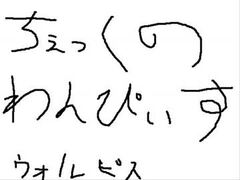 ちぇっくの
わんぴぃす
ウォルピス